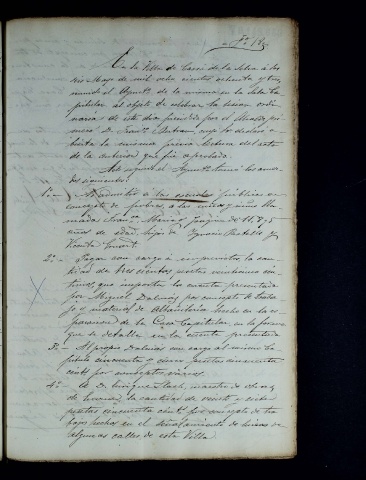 En la Villa de Cassá de la Selva á dos
Mayo de mil ocho cientos ochenta y tres
reunido el Ayuntº de la misma en la Sala Ca-
pitular al objeto de celebrar la sesion ordi-
naria de este dia presidido por el Alcalde pri-
mero D. Franº
bierta la misma previa lectura del acta
de la anterior que fué aprobada.
Acto seguido el Ayuntº tomó los acuer-
dos siguientes:
1º - Admitir á las escuelas públicas en
concepto de pobres, á los niños y niñas lla-
mados Franº, Maria y Joaquin de 11, 8 y 5
años de edad hijos de Ignacio y
Vicenta
2º - Pagar con cargo á imprevistos, la can-
tidad de tres cientas, pesetas veintiuno cén-
timos, que importa la cuenta presentada
por Miguel Dalmau por concepto de traba-
jo y material de Albañileria hecho en la re-
paracion de la Casa Capitular en la forma
que se detalla en la cuenta presentada
3º - Al propio Dalmau con cargo al mismo Ca-
pitulo cincuenta y cinco pesetas cincuenta
cents por varios
4º - A D. Enrique maestro de obras
de Gerona, la cantidad de veinte y siete
pesetas cincuenta cénts por concepto de tra-
bajos hechos en el señalamiento de lineas de
algunas calles de esta Villa.